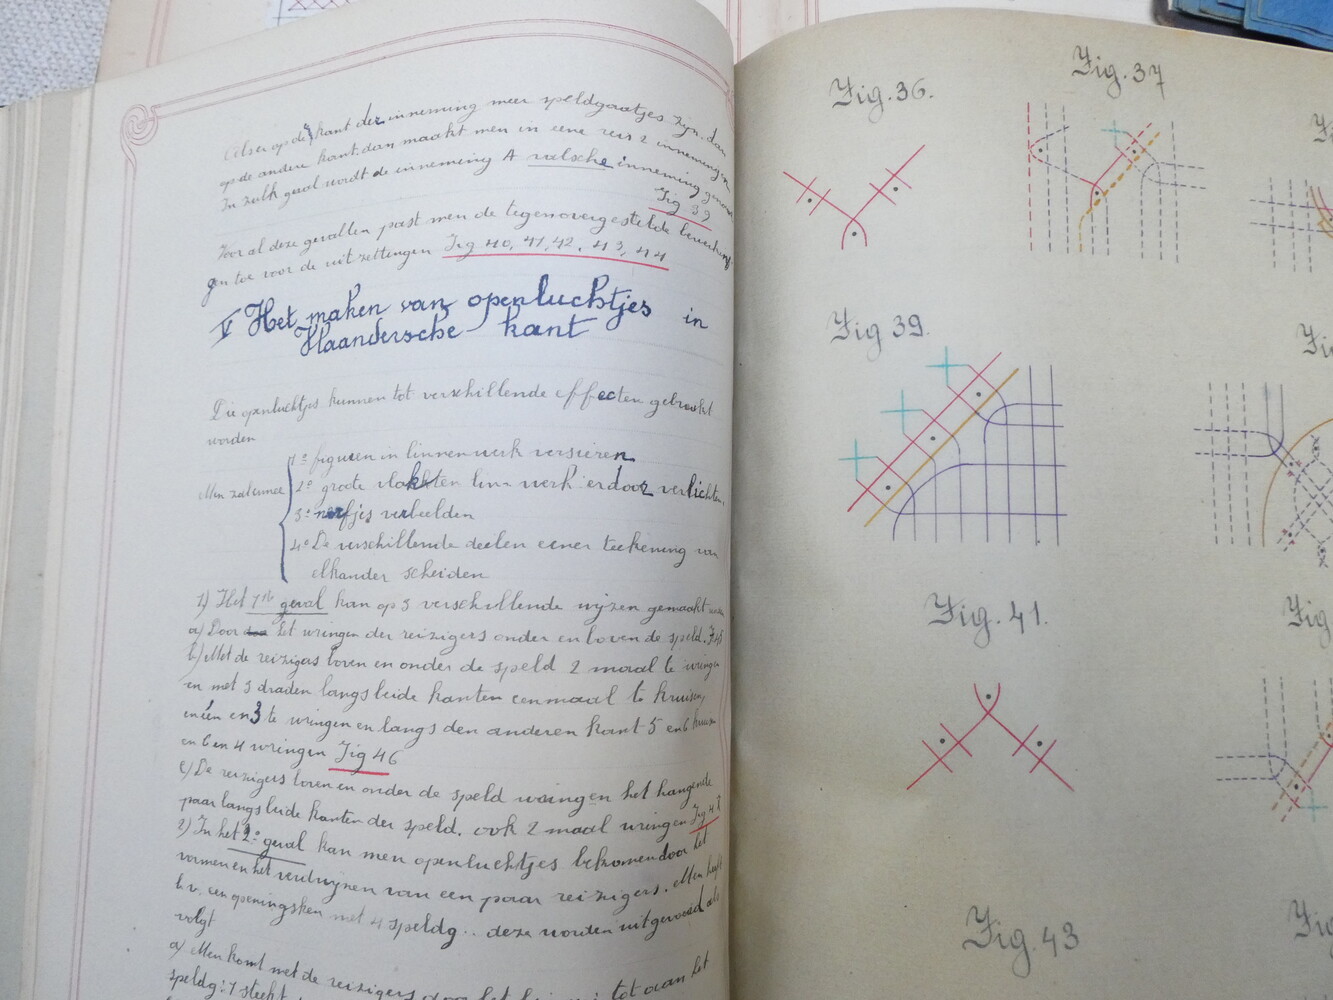 Als er op de kant der inneming meer speldgaatjes zijn dan
op de andere kant dan maakt men in eene reis 2 innemingen
In zulk geval wordt de inneming A valsche inneming genoemd
Fig 39
Voor al deze gevallen past men de tegenovergestelde bewerkin
gen toe voor de uitzettingen Fig 40, 41, 42, 43, 44
V Het maken van openluchtjes in
Vlaandersche kant
Die openluchtjes kunnen tot verschillende effecten gebruikt
worden
Men zal ermee
1º figuren in linnenwerk versieren
2º groote vlakten linnwerk erdoor verlichten
3º nerfjes verbeelden
4º De verschillende deelen eener teekening van
elkander scheiden
1) Het 1ste geval kan op 3 verschillende wijzen gemaakt
a) Door het wringen der reizigers onder en boven de speld. F 45
b) Met de reizigers boven en onder de speld 2 maal te wringen
en met 3 draden langs beide kanten eenmaal te kruisen,
en 3 te wringen en langs den anderen kant 5 en 6 kruisen
en 6 en 4 wringen Fig 46
c) De reizigers boven en onder de speld wringen het hangende
paar langs beide kanten der speld. ook 2 maal wringen Fig 47
2) In het 2º geval kan men openluchtjes bekomen door het
vormen en het verdwijnen van een paar reizigers. Men heeft
b.v. een openingsken met 4 speldg.. deze worden uitgevoerd als
volgt
a) Men komt met de reizigers door het tot aan het
speldg: 1 steekt
Fig. 36.
Fig. 37
Fig 39.
Fig. 41.
Fig
Fig. 43